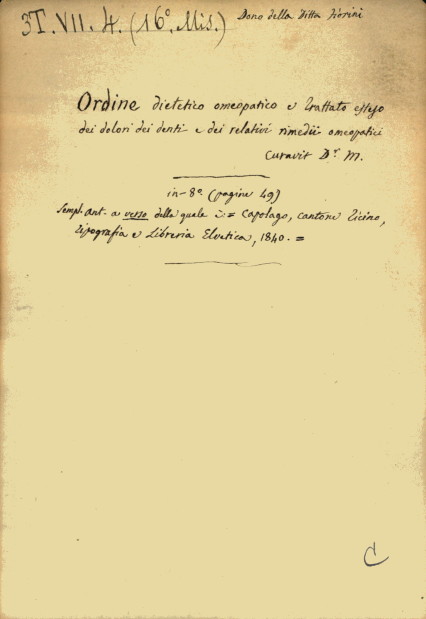 3T. VII. 4. (16° Mis.) Dono della Ditta Fiorini
Ordine dietetico omeopatico e trattato esteso
dei dolori dei denti e dei relativi rimedii omeopatici
curavit Dr M.
in-8° (pagine 49)
Sempl. Ant. a verso della quale è = Capolago, cantone Ticino,
Tipografia e Libreria Elvetica, 1840. =
C